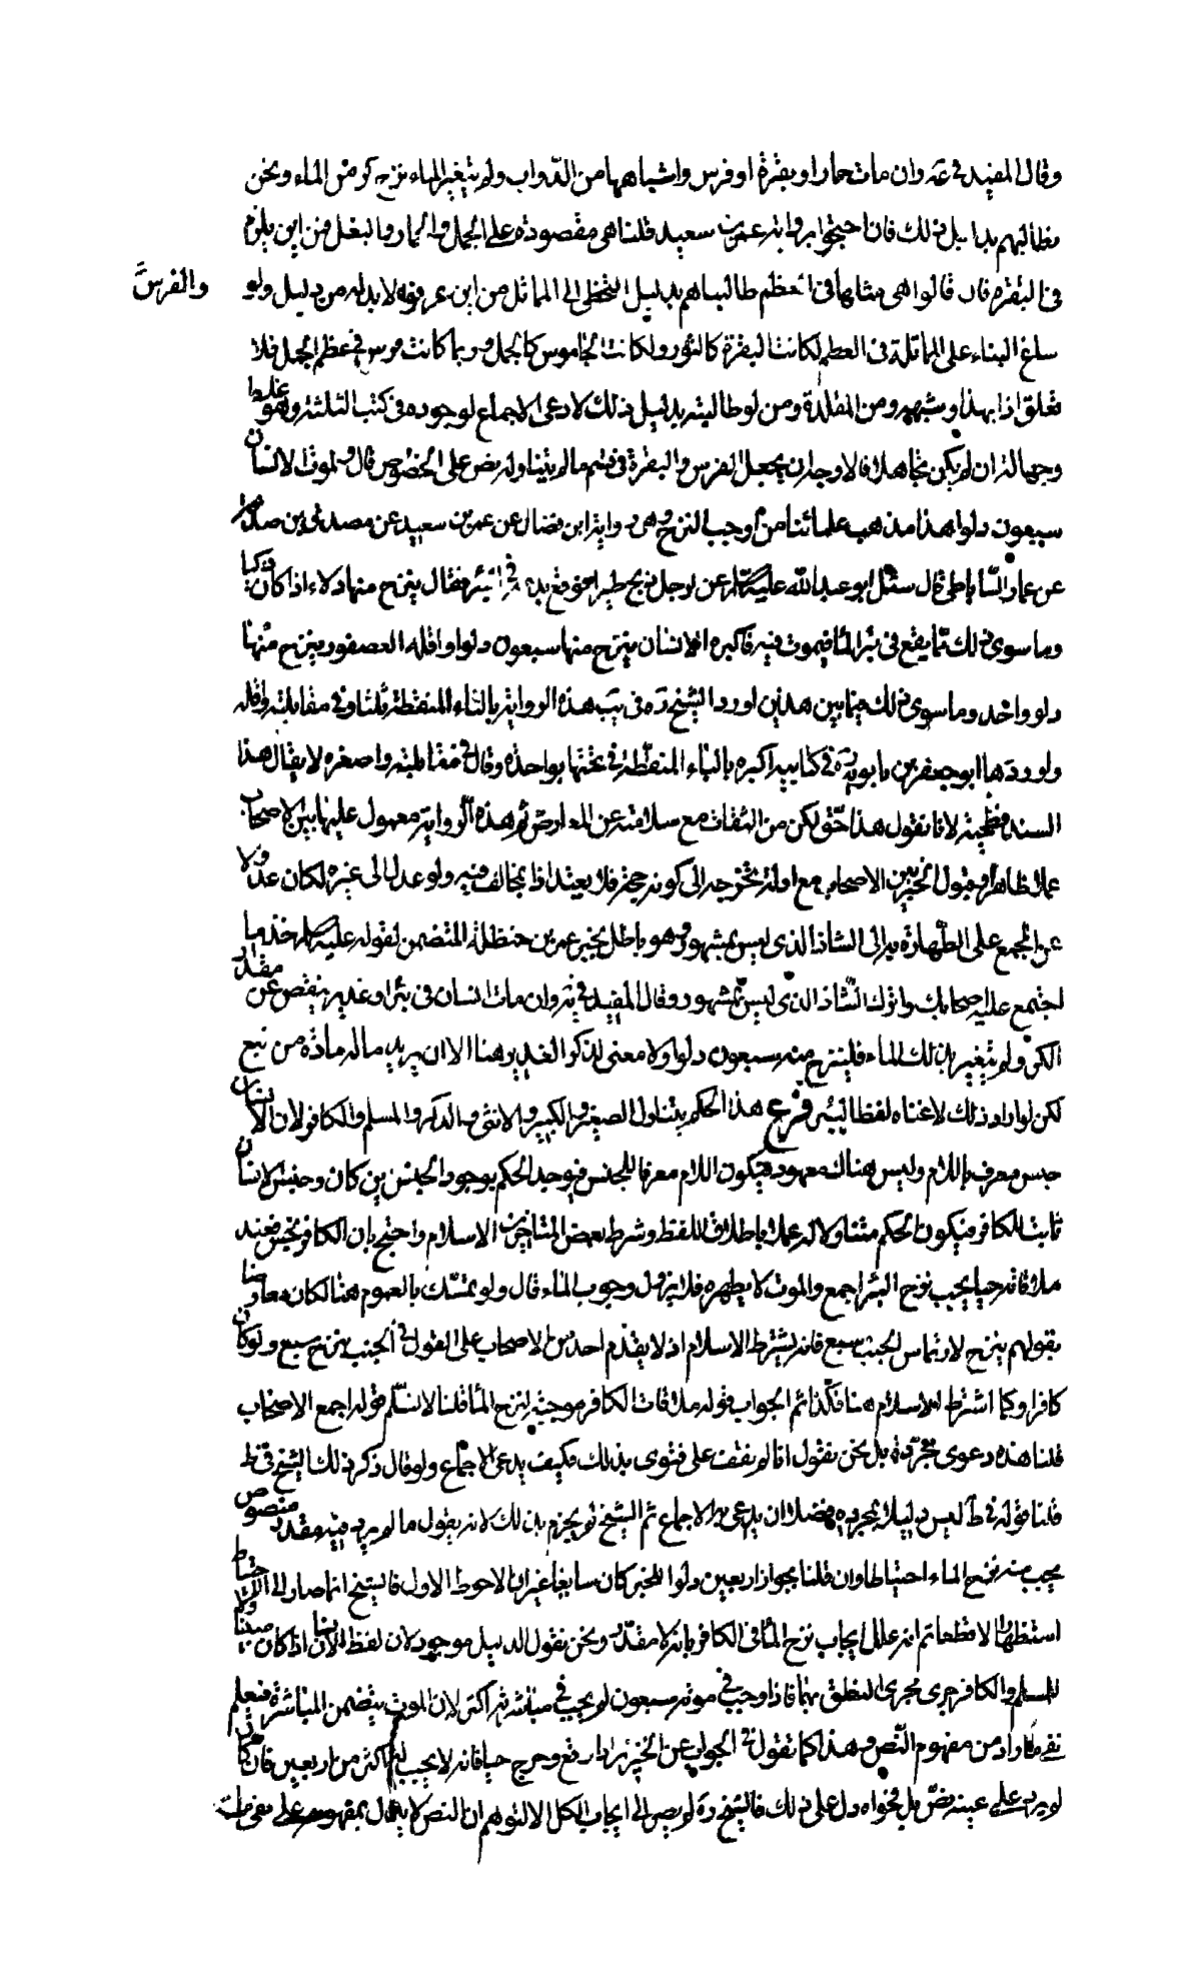 وقال المفيد في عه وان مات حمار او بقرة او فرس واشباهها من الدواب ولم يتغير الماء نزح كر من الماء ونحن
نطالبهم بدليل ذلك فان احتجوا برواية عمرو بن سعيد قلنا هي مقصودة على الجمل والحمار والبغل فمن اين يلزم
والفرس
في البقرة فان قالوا هي مثلها في العظم طالبناهم بدليل التخطي الى المماثل من اين عرفوه لا بد له من دليل ولو
ساغ البناء على المماثلة في العظم لكانت البقرة كالثور ولكانت الجاموس كالجمل وربما كانت فرس في عظم الجمل فلا
تعلق اذا بهذا وشبهه ومن المقلدة ومن لو طالبته بدليل ذلك لادعى الاجماع لوجوده في كتب الثلثة وهو غلط
وجهالة ان لم يكن تجاهلا فالاوجه ان يجعل الفرس والبقرة في قسم ما لم يتناوله نص على الخصوص قال ولموت الانسان
سبعون دلوا هذا مذهب علمائنا من اوجب النزح وهي رواية ابن فضال عن عمرو بن سعيد عن مصدق بن صدقة
عن عمار الساباطي قال سئل ابو عبد الله عليه السلام عن رجل ذبح طيرا فوقع بدمه في البئر فقال ينزح منها دلاء اذا كان ذكيا
وما سوى ذلك مما يقع في بئر الماء فيموت فيه فاكبره الانسان ينزح منها سبعون دلوا واقله العصفور ينزح منها
دلو واحد وما سوى ذلك فيما بين هذين اورد الشيخ ره في يب هذه الرواية بالثاء المنقطة ثلثا وفي مقابلته واقله
واوردها ابو جعفر بن بابويه ره في كتابيه اكبره بالباء المنقطة في تحتها بواحدة وقال في مقابلته واصغره لا يقال هذا
السند فطحية لانا نقول هذا حق لكن من الثقات مع سلامته عن المعارض ثم هذه الرواية معمول عليها بين الاصحاب
عملا ظاهرا وقبول الخبر بين الاصحاب مع اولته تخرجه الى كونه حجة فلا يعتد اذا بخالف فيه ولو عدل الى غيره لكان عدولا
عن المجمع على الطهارة به الى الشاذ الذي ليس بمشهور وهو باطل بخبر عمر بن حنظلة المتضمن لقوله عليه السلام خذ ما
اجتمع عليه اصحابك واترك الشاذ الذي ليس بمشهور وقال المفيد في عه وان مات انسان في بئر او غدير ينقص عن مقدار
الكر ولم يتغير بذلك الماء فلينزح منه سبعون دلوا ولا معنى لذكر الغدير هنا الا ان يريد ما له مادة من نبع
لكن لو اراد ذلك لاغناه لفظ البئر فرع هذا الحكم يتناول الصغير والكبير والانثى والذكر والمسلم والكافر لان الانسان
جنس معرف باللام وليس هناك معهود فيكون اللام معرفا للجنس فيوجد الحكم بوجود الجنس اين كان وجنس الانسان
ثابت للكافر فيكون الحكم متناولا له عملا باطلاق اللفظ وشرط بعض المتاخرين الاسلام واحتج بان الكافر نجس فعند
ملاقاته حيا يجب نزح البئر اجمع والموت لا يطهره فلا يزول وجوب الماء قال ولو تمسك بالعموم هنا لكان معارضا
بقولهم ينزح لارتماس الجنب سبع فانه يشترط الاسلام اذ لا يقدم احد من الاصحاب على القول في الجنب ينزح سبع ولو كان
كافرا وكما اشترط الاسلام هنا فكذا ثم الجواب قوله ملاقات الكافر موجبة لنزح الماء قلنا لا نسلم قوله اجمع الاصحاب
قلنا هذه دعوى مجردة بل نحن نقول انا لم نقف على فتوى بذلك فكيف يدعى الاجماع ولو قال ذكر ذلك الشيخ في ط
قلنا قوله في ط ليس دليلا بمجرده فضلا ان يدعى به الاجماع ثم الشيخ لم يجزم بذلك لانه يقول ما لم يرد فيه مقدر منصوص
يجب منه نزح الماء احتياطا وان قلنا بجواز اربعين دلوا للخبر كان سايغا غير ان الاحوط الاول فالشيخ انما صار الى ذلك احتياطا
استظهارا لا قطعا ثم انه علل ايجاب نزح الماء في الكافر بانه لا مقدر ونحن نقول الدليل موجود لان لفظ الانسان اذا كان متناولا
للمسلم والكافر جرى مجرى النطق بهما فاذا وجب في موته سبعون لم يجب في مباشرته اكثر لان الموت يتضمن المباشرة فيعلم
نفي ما زاد من مفهوم النص وهذا كما نقول في الجواب عن الخنزير اذا وقع وخرج حيا فانه لا يجب له اكثر من اربعين فان كان
لم يرد على عينه نص بل فحواه دل على ذلك فالشيخ ره لم يصر الى ايجاب الكل الا لتوهم ان النص لا يدل بمفهومه على نفي